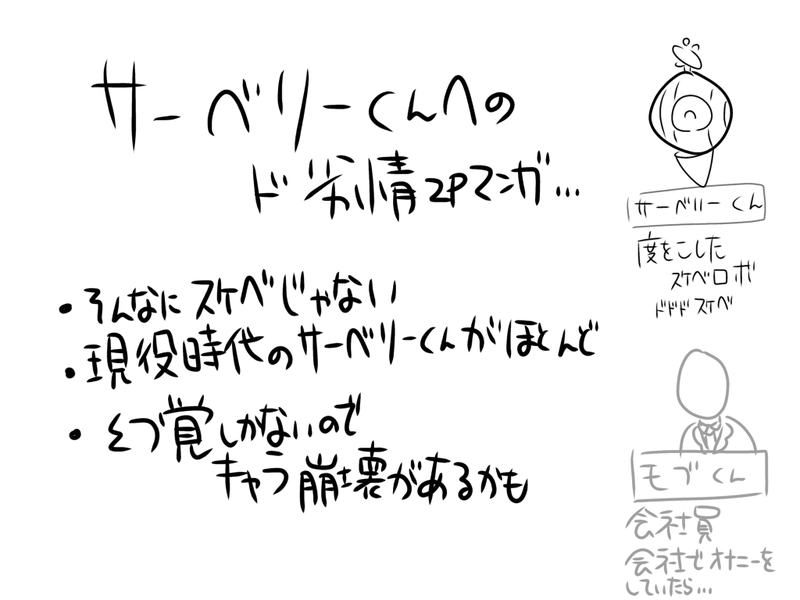 サーベリーくんへの
ド劣情2Pマンガ…
・そんなにスケベじゃない
・現役時代のサーベリーくんがほとんど
・そづ覚しかないので
キャラ崩壊があるかも
サーベリーくん
度をこした
スケベロボ
ドドドスケベ
モブくん
会社員
会社でオナニーを
していたら…